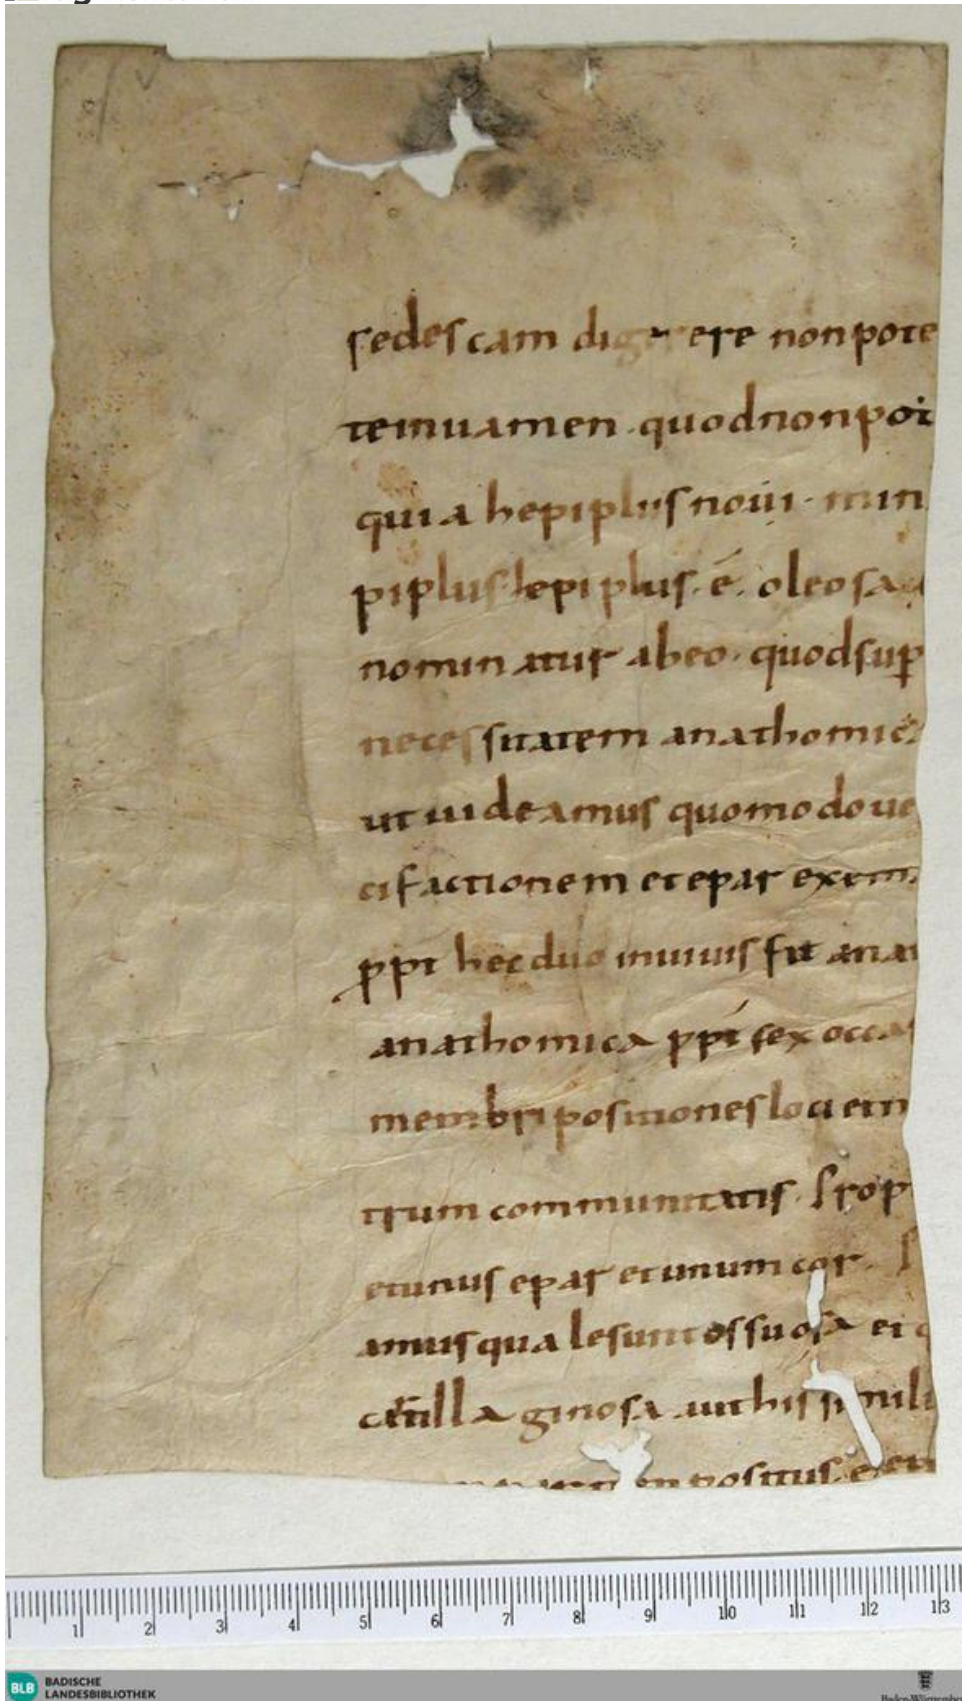 sedes cam digerere non pote
tenuamen · quod non pot
quia hepiplus noui · nun
piplus · hepiplus · ē · oleosa
nominatur abeo · quod sup̄
necessitatem anathomic
ut uideamus quomodo ue
cifactionem et epar exten
ꝓpt hec duo inuiuis fit anat
anathomica ꝓpt sex occa
membri positiones loci etn
trum communitatis · Prop
et unus epar et unum cor ·
amus qualesunt ossuosa et
cartillaginosa aut his simili
positus · ē · et
1 2 3 4 5 6 7 8 9 10 11 12 13
BLB BADISCHE
LANDESBIBLIOTHEK